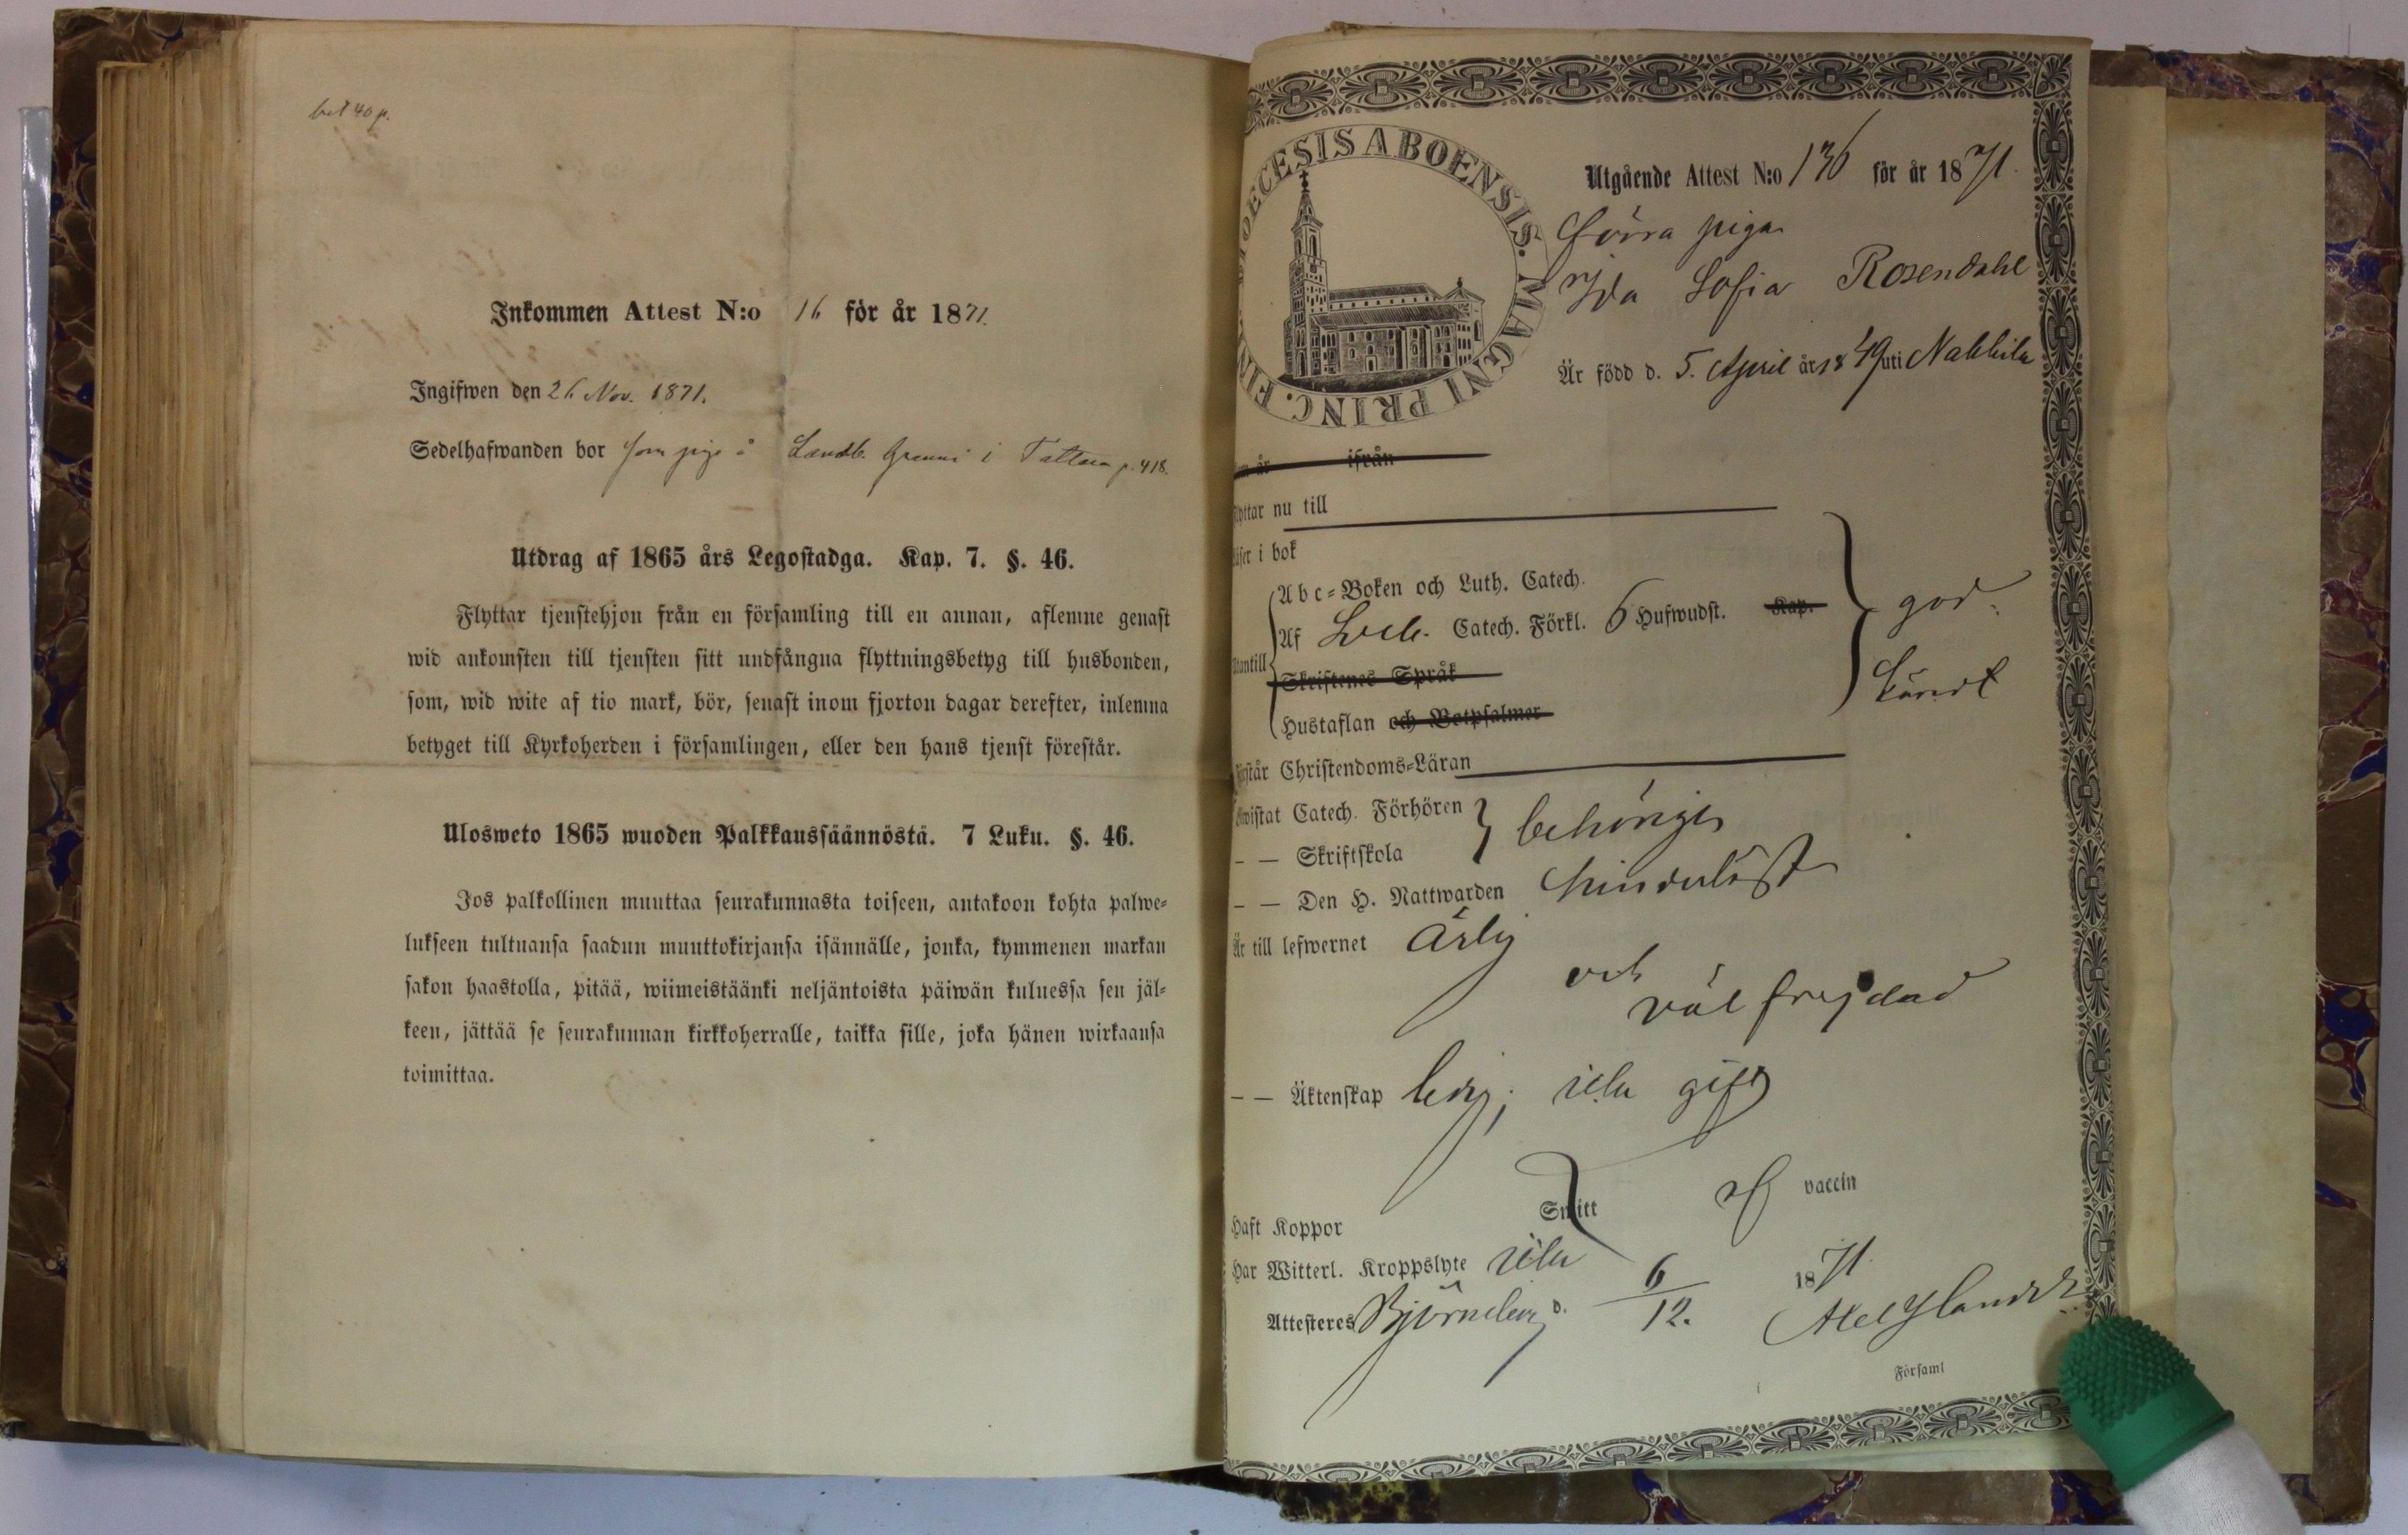 bet 40 p.
Inkommen Attest N:o 16 för år 1871.
Ingifwen den 26 Nov. 1871.
Sedelhafwanden bor som piga å Landb. i p. 418.
Utdrag af 1865 års Legostadga. Kap. 7. §. 46.
Flyttar tjenstehjon från en församling till en annan, aflemne genast
wid ankomsten till tjensten sitt undfångna flyttningsbetyg till husbonden,
som, wid wite af tio mark, bör, senast inom fjorton dagar derefter, inlemna
betyget till Kyrkoherden i församlingen, eller den hans tjenst förestår.
Ulosweto 1865 wuoden Palkkaussäännöstä. 7 Luku. §. 46.
Jos palkollinen muuttaa seurakunnasta toiseen, antakoon kohta palwe-
lukseen tultuansa saadun muuttokirjansa isännälle, jonka, kymmenen markan
sakon haastolla, pitää, wiimeistäänki neljäntoista päiwän kuluessa sen jäl-
keen, jättää se seurakunnan kirkkoherralle, taikka sille, joka hänen wirkaansa
toimittaa.
DIOECESIS ABOENSIS. MAGNI PRINC. FINL.
Utgående Attest N:o 136 för år 1871.
Förra pigan
Ida Sofia Rosendahl
Är född d. 5. April år 1849 uti Nakkila
år ifrån
Flyttar nu till
Läser i bok
Abc-Boken och Luth. Catech.
Af Catech. Förkl. 6 Hufwudst. Kap.
god
Utantill
Skriftenes Språk
känd
Hustaflan och Botpsalmer
Förstår Christendoms-Läran
Bewistat Catech. Förhören
behörigen
– – Skriftskola
– – Den H. Nattwarden hinderlöst
Är till lefwernet ärlig
och
väl frejdad
– – Äktenskap ledig; icke gift
Haft Koppor Smitt af vaccin
Har Witterl. Kroppslyte icke
Attesteras Björneborg d. 6/12. 1871
Axel
Församl